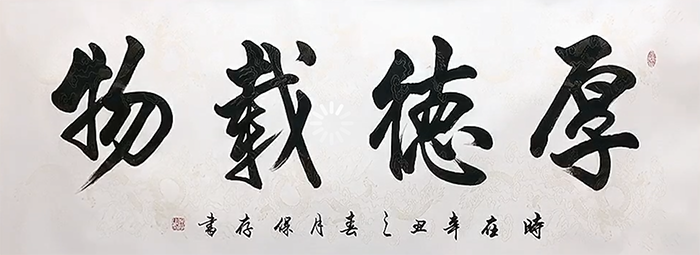 厚德載物
時在辛丑之春月保存書